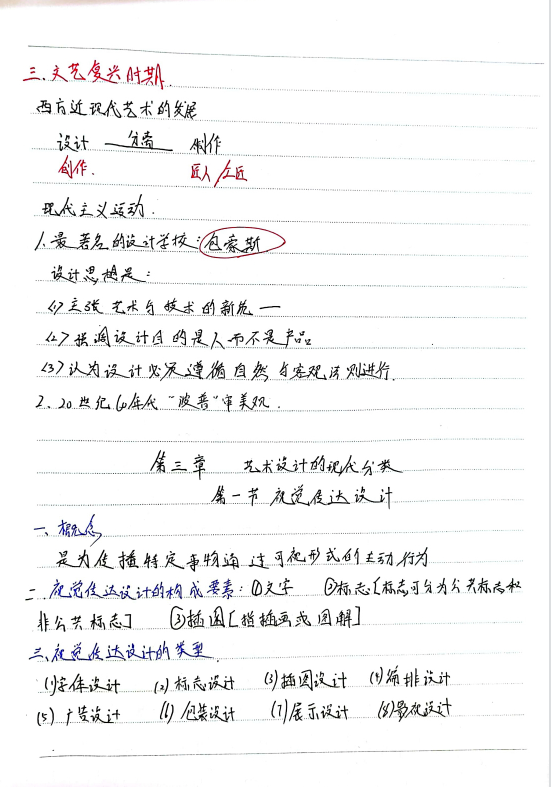 三.文艺复兴时期.
西方近现代艺术的发展
设计 分离 制作
创作. 匠人/工匠
现代主义运动.
1.最著名的设计学校:包豪斯
设计思想是:
(1)主张艺术与技术的新统一
(2)强调设计目的是人而不是产品
(3)认为设计必须遵循自然与客观法则进行.
2.20世纪60年代"波普"审美观.
第三章 艺术设计的现代分类
第一节 视觉传达设计
一、概念
是为传播特定事物通过可视形式的主动行为
二.视觉传达设计的构成要素:①文字 ②标志[标志可分为公共标志和
非公共标志] ③插图[指插画或图解]
三.视觉传达设计的类型
(1)字体设计 (2)标志设计 (3)插图设计 (4)编排设计
(5)广告设计 (6)包装设计 (7)展示设计 (8)影视设计